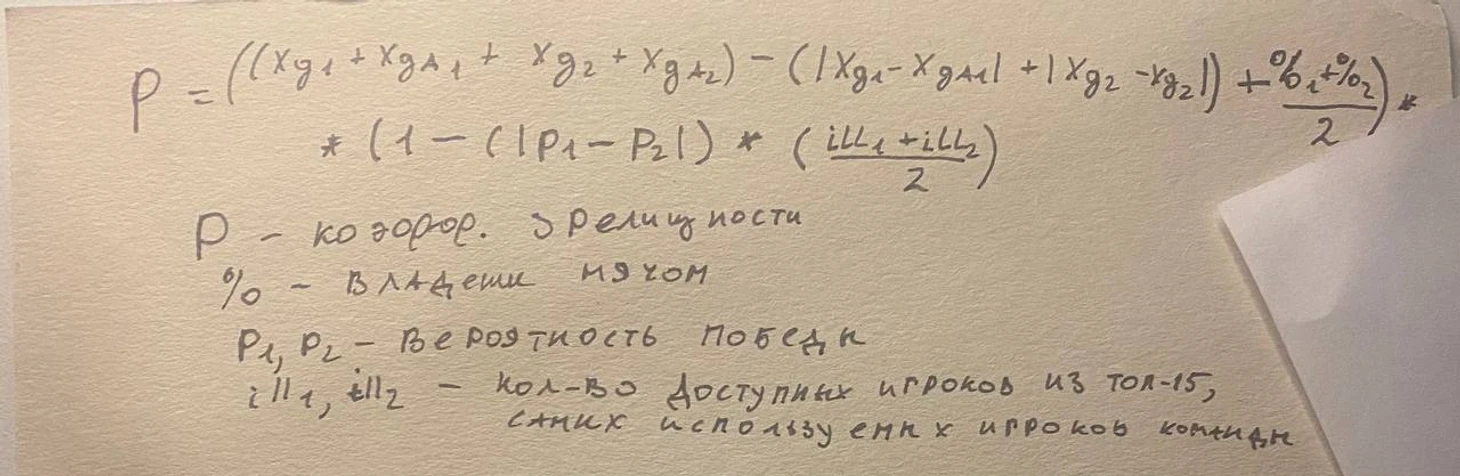 P = ((xg₁ + xgA₁ + xg₂ + xgA₂) − (|xg₁ − xgA₁| + |xg₂ − xg₂|) + (%₁ + %₂)/2) *
* (1 − (|P₁ − P₂|) * ((ill₁ + ill₂)/2)
P – коэффр. зрелищности
% – владеши мячом
P₁, P₂ – вероятность победы
ill₁, ill₂ – кол-во доступных игроков из топ-15,
самих используемых игроков команды